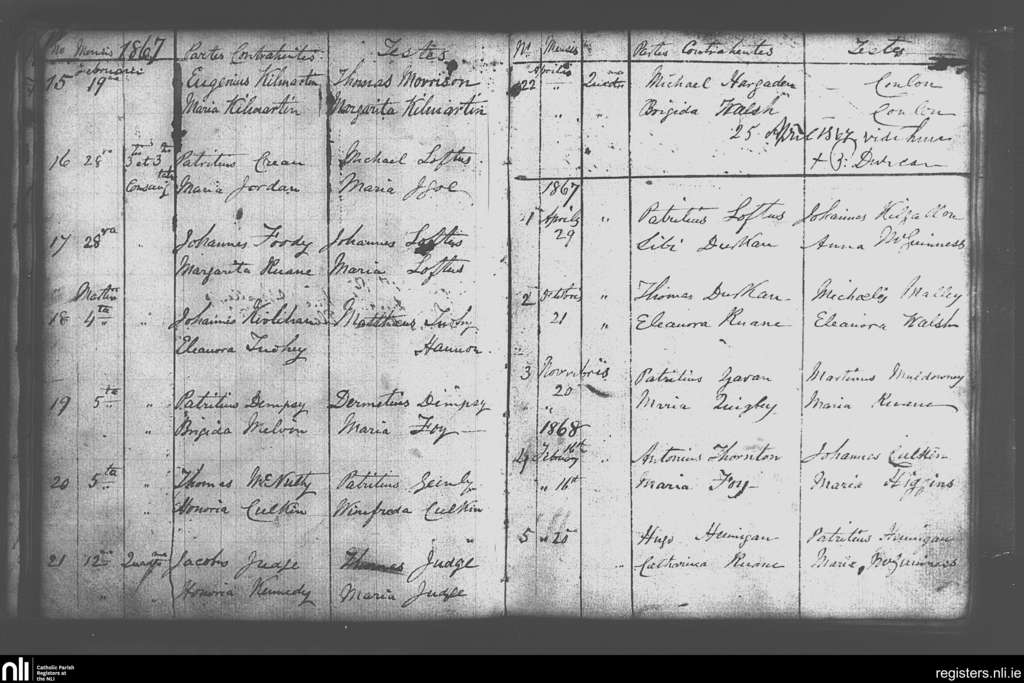 No Mensis 1867 Partes Contrahentes Testes
Februarii
15 19 Eugenius Kilmartin Thomas Morrison
Maria Kilmartin Margarita Kilmartin
16 28 3 et 3 Patritius Crean Michael Loftus
Consang Maria Jordan Maria Igoe
17 28 " Johannes Foody Johannes Loftus
Margarita Ruane Maria Loftus
Martii
18 4ta " Johannes Matthaeus Tuohy
Eleanora Tuohey Hannon
19 5ta " Patritius Dempsy Dermetius Dempsy
" " Brigida Melvin Maria Foy
20 5ta " Thomas McNulty Patritius
" " Honoria Culkin Winifreda Culkin
21 12 Jacobs Judge Thomas Judge
" " Honoria Kennedy Maria Judge
No Mensis Partes Contrahentes Testes
Aprilis
22 " Michael Hargadon Conlon
" " Brigida Walsh Conlon
25 April 1867 vidi hunc
+ Duncan
1867
1 Aprilis " Patritius Loftus Johannes Kilgallon
29 Durkan Anna McGuinness
2 Octobris " Thomas Durkan Michaelis Malley
21 " Eleanora Ruane Eleanora Walsh
3 Novembris Patritius Gavan Martinus Muldowney
20 Maria Quigley Maria Ruane
"
1868
4 February 16th " Antonius Thornton Johannes Culkin
" 16th Maria Foy Maria Higgins
5 " 20 Hugo Hennigan Patritius Hennigan
" Catharina Ruane Maria McGuinness
nli Catholic Parish
Registers at
the NLI
registers.nli.ie